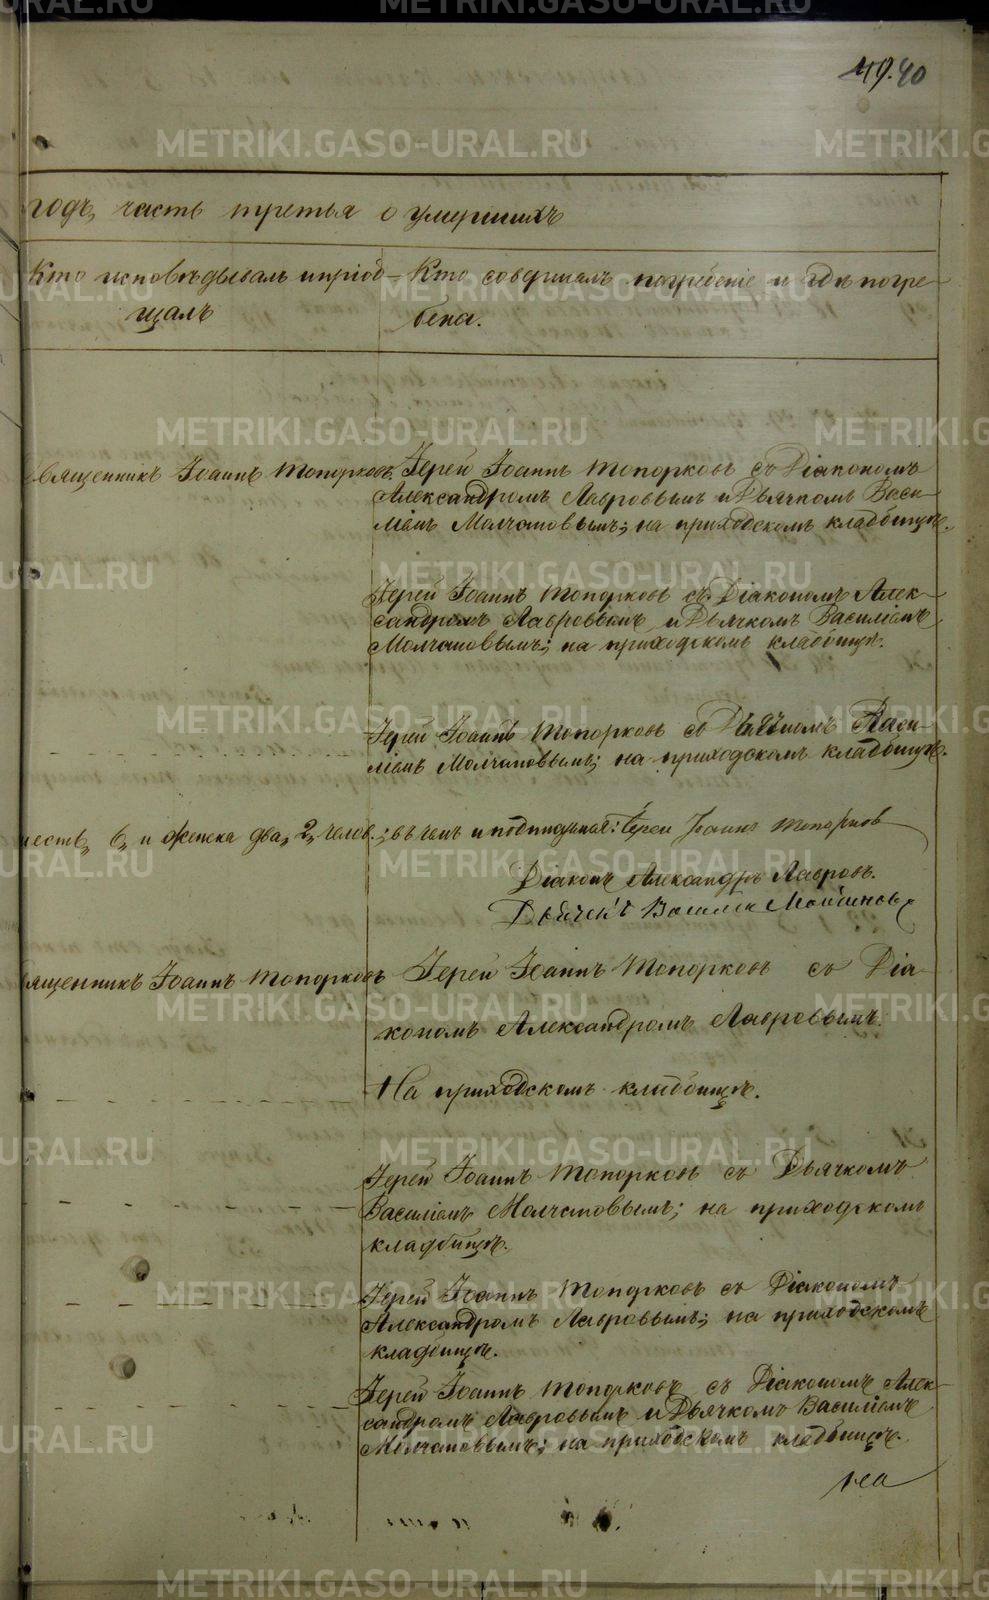 49. 40
годъ, часть третья о умершихъ
Кто исповѣдывалъ и пріоб-
щалъ
Кто совершалъ погребеніе и гдѣ погре-
бены.
священникъ Іоаннъ Топорковъ.
Іерей Іоаннъ Топорковъ съ Діакономъ
Александромъ Лавровымъ и Дьячкомъ Васи-
ліемъ Молчановымъ; на приходскомъ кладбищѣ.
Іерей Іоаннъ Топорковъ съ Діакономъ Алек-
сандромъ Лавровымъ и Дьячкомъ Василіемъ
Молчановымъ; на приходскомъ кладбищѣ.
Іерей Іоаннъ Топорковъ съ Дьячкомъ Васи-
ліемъ Молчановымъ; на приходскомъ кладбищѣ.
шесть, 6, и женска два, 2, челов.; въ чемъ и подписуемся: Іерей Іоаннъ Топорковъ
Діаконъ Александръ Лавровъ.
Дьячекъ Василій Молчановъ
священникъ Іоаннъ Топорковъ
Іерей Іоаннъ Топорковъ съ Діа-
кономъ Александромъ Лавровымъ.
На приходскомъ кладбищѣ.
Іерей Іоаннъ Топорковъ съ Дьячкомъ
Василіемъ Молчановымъ; на приходскомъ
кладбищѣ.
Іерей Іоаннъ Топорковъ съ Діакономъ
Александромъ Лавровымъ; на приходскомъ
кладбищѣ.
Іерей Іоаннъ Топорковъ съ Діакономъ Алек-
сандромъ Лавровымъ и Дьячкомъ Василіемъ
Молчановымъ; на приходскомъ кладбищѣ.
на
METRIKI.GASO-URAL.RU